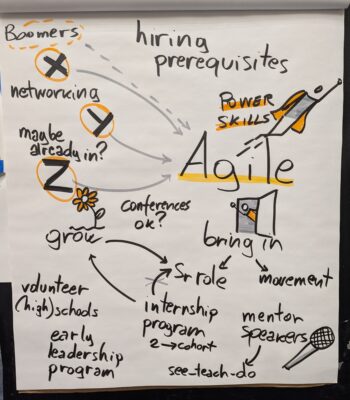 Boomers
hiring
prerequisites
X
networking
POWER
SKILLS
Y
maybe
already in?
Agile
Z
conferences
ok?
grow
bring in
Sr role
movement
volunteer
(high) schools
internship
program
2 → cohort
mentor
speakers
early
leadership
program
see_teach_do